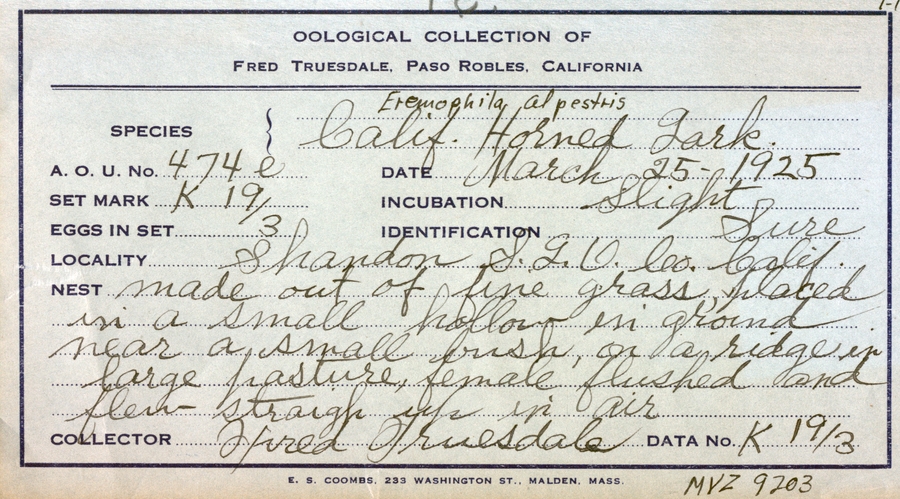 OOLOGICAL COLLECTION OF
FRED TRUESDALE, PASO ROBLES, CALIFORNIA
Eremophila alpestris
SPECIES } Calif. Horned Lark.
A. O. U. No. 474 e DATE March 25 - 1925
SET MARK K 19/3 INCUBATION Slight
EGGS IN SET 3 IDENTIFICATION Sure
LOCALITY Shandon S.L.O. Co. Calif.
NEST made out of fine grass, placed
in a small hollow in ground
near a small bush, on a ridge in
large pasture, female flushed and
flew straigh up in air
COLLECTOR Fred Truesdale DATA No. K 19/3
E. S. COOMBS, 233 WASHINGTON ST., MALDEN, MASS.
MVZ 9203